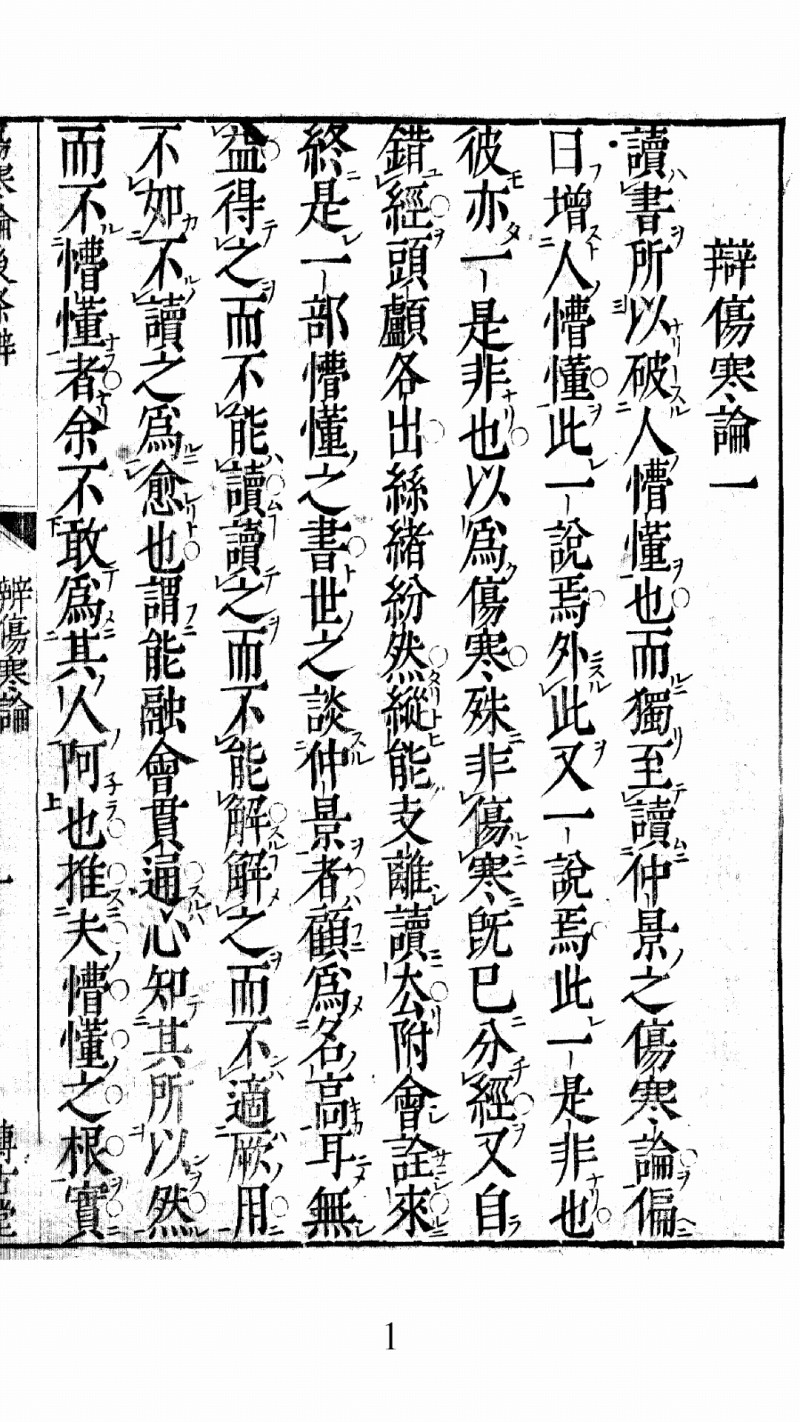 辯傷寒論一
讀書所以破人懵懂也而獨至讀仲景之傷寒論偏
日增人懵懂此一說焉外此又一說焉此一是非也
彼亦一是非也以爲傷寒殊非傷寒旣已分經又自
錯經頭顱各出絲緖紛然縱能支離讀去附會詮來
終是一部懵懂之書世之談仲景者顧爲名高耳無
益得之而不能讀讀之而不能解解之而不適厥用
不如不讀之爲愈也謂能融會貫通心知其所以然
而不懵懂者余不敢爲其人阿也推夫懵懂之根實
傷寒論後條辨
辨傷寒論
一
博古堂
1